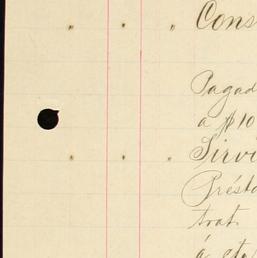 " " " Cons
Pagad
a $10
" " " Sirvi
Présta
trat.
á eta